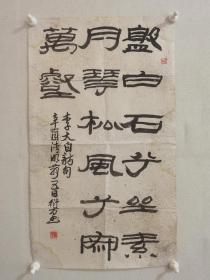 盤白石兮坐素
月琴松風兮寂
萬壑
李太白詩句
辛酉清明前日衍方